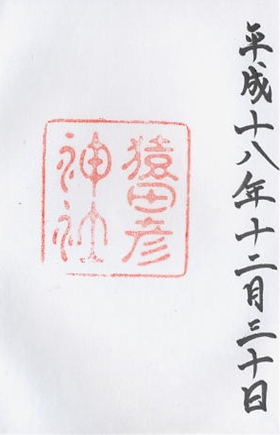 平成十八年十二月三十日
猿田彦
神社